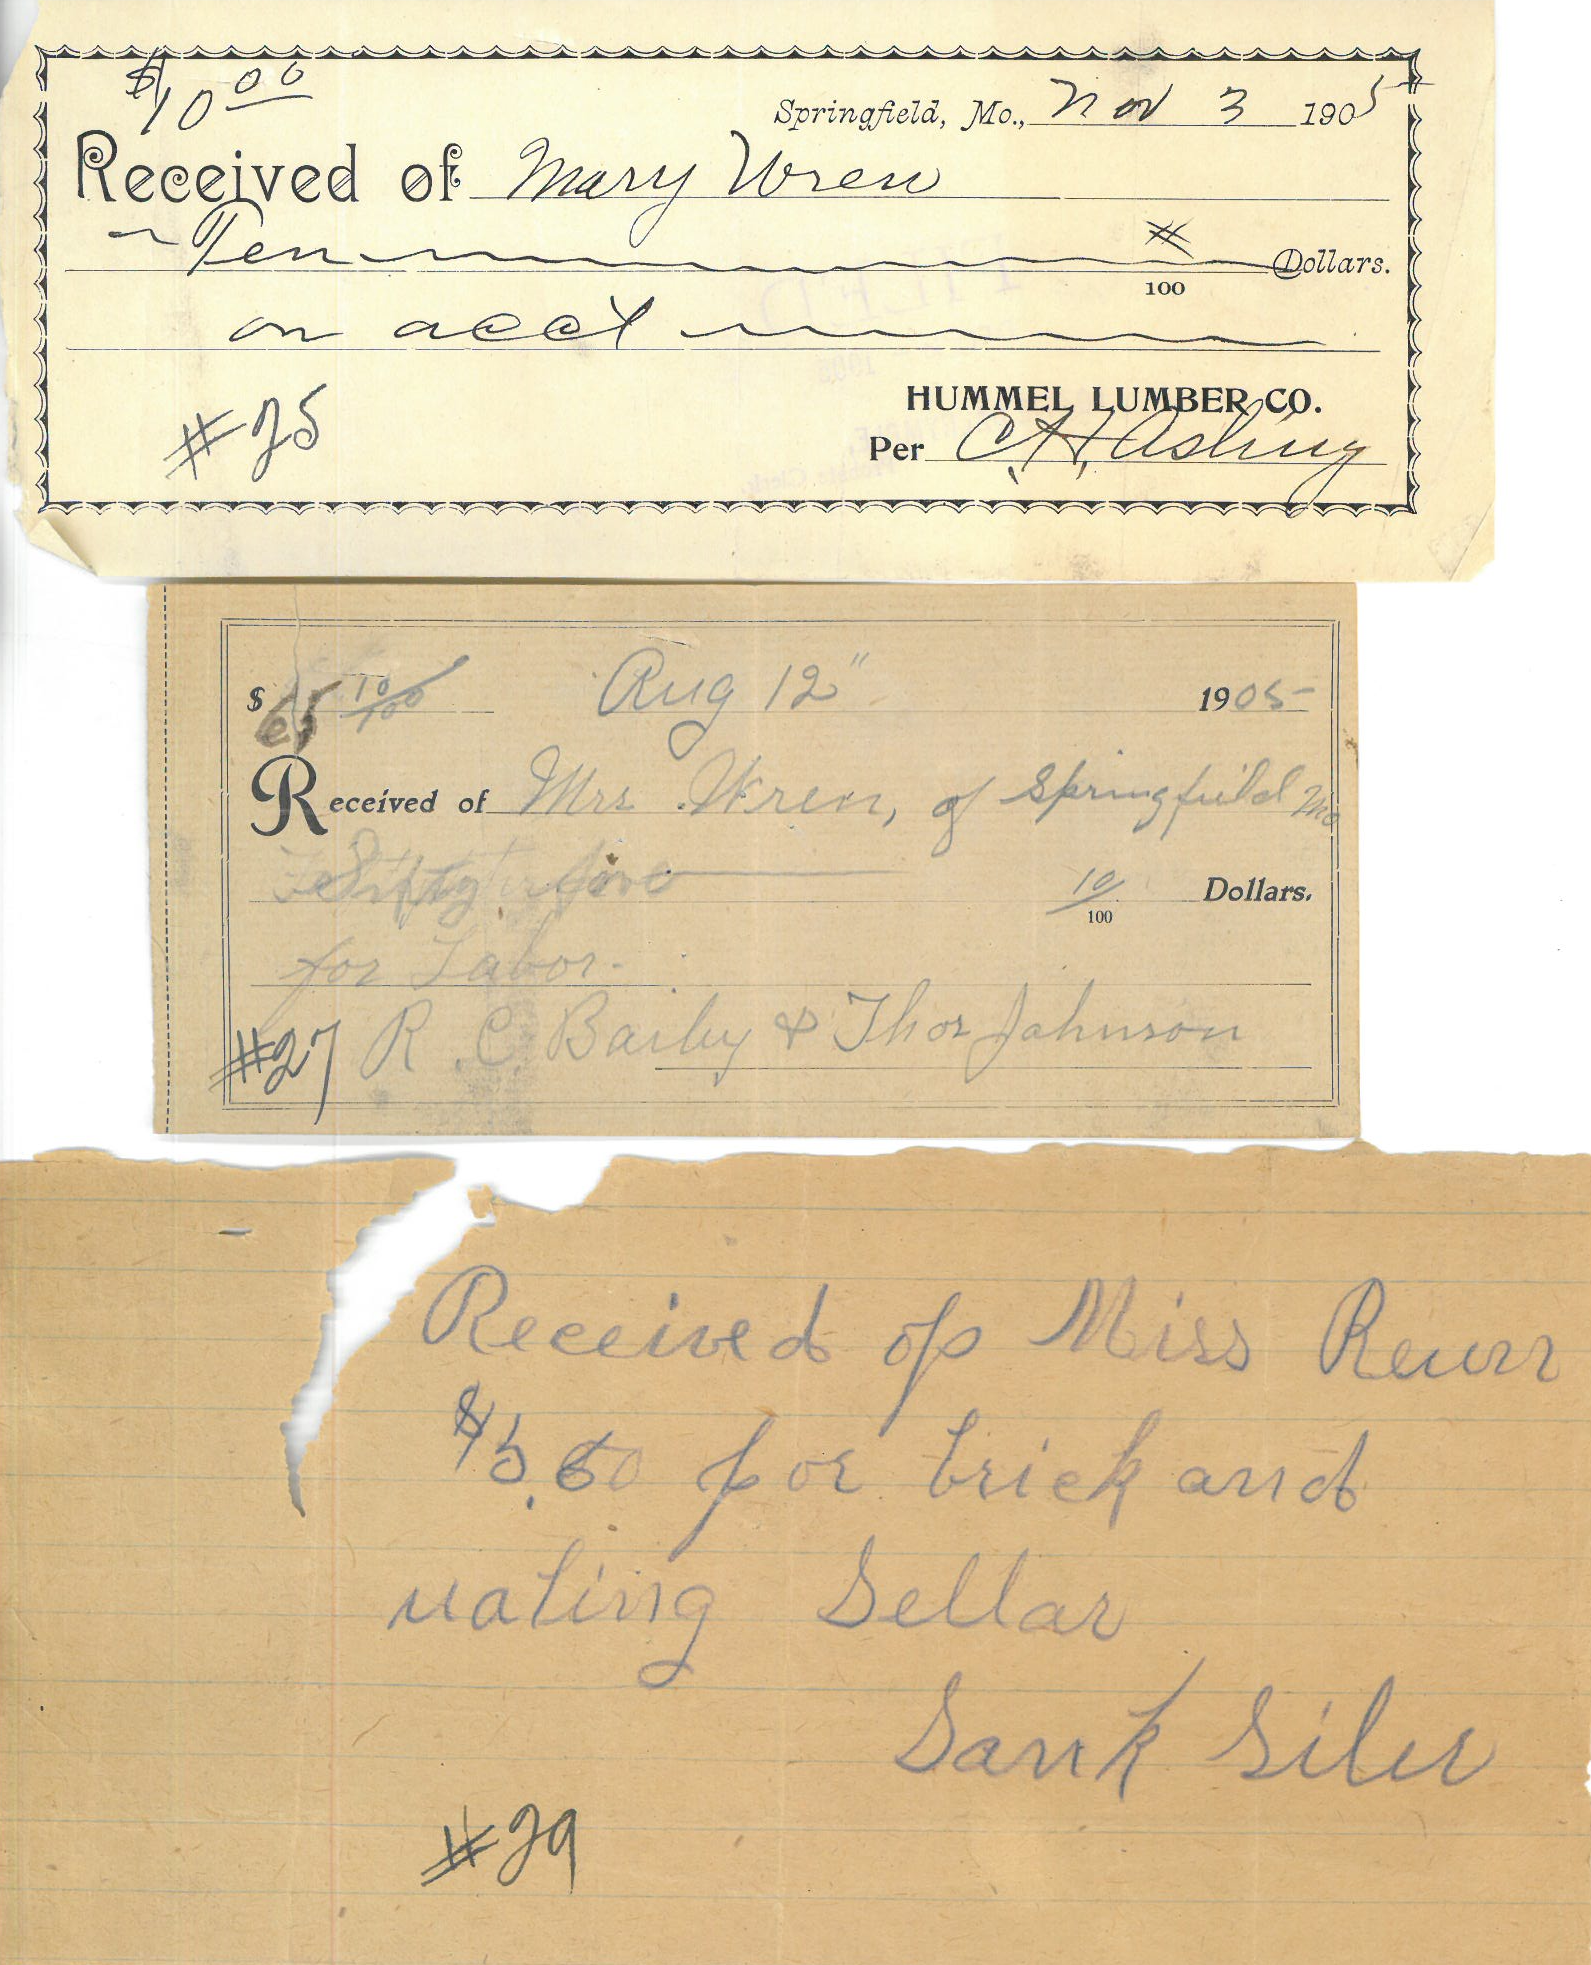 $10 00
Springfield, Mo., Nov 3 1905
Received of Mary Wren
Ten Dollars.
100
on acct
HUMMEL LUMBER CO.
#25
Per C. H.
$65 10/100 Aug 12" 1905
Received of Mrs. Wren, of Springfield Mo
five 10/100 Dollars.
for Labor.
#27 R. C. Baily & Thos Johnson
Received of Miss Reurr
$5.60 for brick and
uating Sellar
Sank Siler
#29